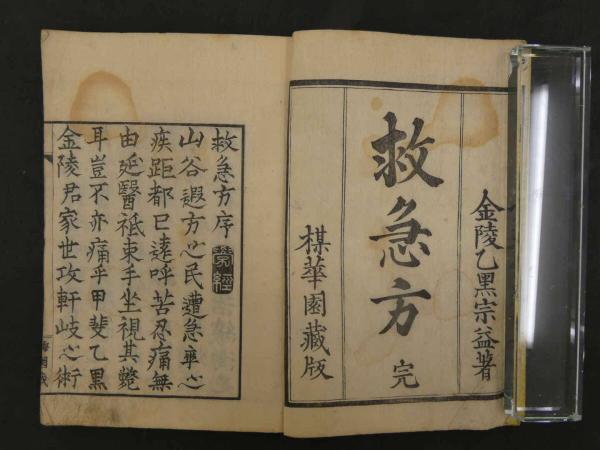 金陵乙黒宗益著
救急方 完
棋華園蔵版
救急方序
山谷遐方之民遭急卒之
疾距都已遠呼苦忍痛無
由延醫祗束手坐視其斃
耳豈不亦痛乎甲斐乙黒
金陵君家世攻軒岐之術